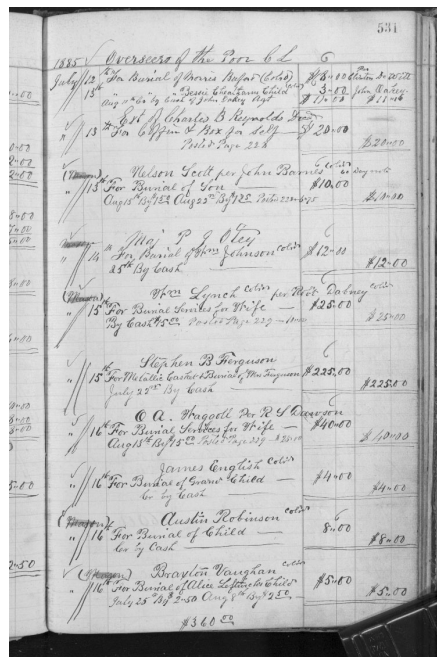 531
1885 Overseers of the Poor C L 6
July 12 th For Burial of Morris Buford (Cold) $8.00
15th " " " Bessie Cheatham Child 3.00 John Oakey
Aug 10th Cr by Cash of John Oakey Agt $11.00 $11.00
Est of Charles B Reynolds Decd
13 th For Coffin & Box for Self — $20.00
Posted Page 228 $20.00
Nelson Scott per John Barnes cold
15 th For Burial of Son — $10.00
Aug 15th By 1.50 Aug 22nd By 1.25 Posted 228 $10.00
Maj P J Otey 6
14 th For Burial of Wm Johnson cold $12.00
25th By Cash $12.00
Wm Lynch cold per Robt Dabney cold 6
15 th For Burial Services for Wife $25.00
By Cash 15.00 Posted Page 229 — 10.00 $25.00
Stephen B Ferguson 6
15 th For Metallic Casket & Burial of Mrs Ferguson $225.00
July 22nd By Cash $225.00
C A. Waggoll Per R S Dawson 6
16 th For Burial Services for Wife — $40.00
Aug 15th By 15.00 Posted Page 229 — $25.00 $40.00
James English cold
16 th For Burial of Grand Child — $4.00
Cr by Cash $4.00
Austin Robinson cold 6
16 th For Burial of Child — 8.00
Cr by Cash $8.00
Braxton Vaughan cold
16 th For Burial of Alice Child $5.00
July 25th By $2.50 Aug 8th By $2.50 $5.00
$360.00